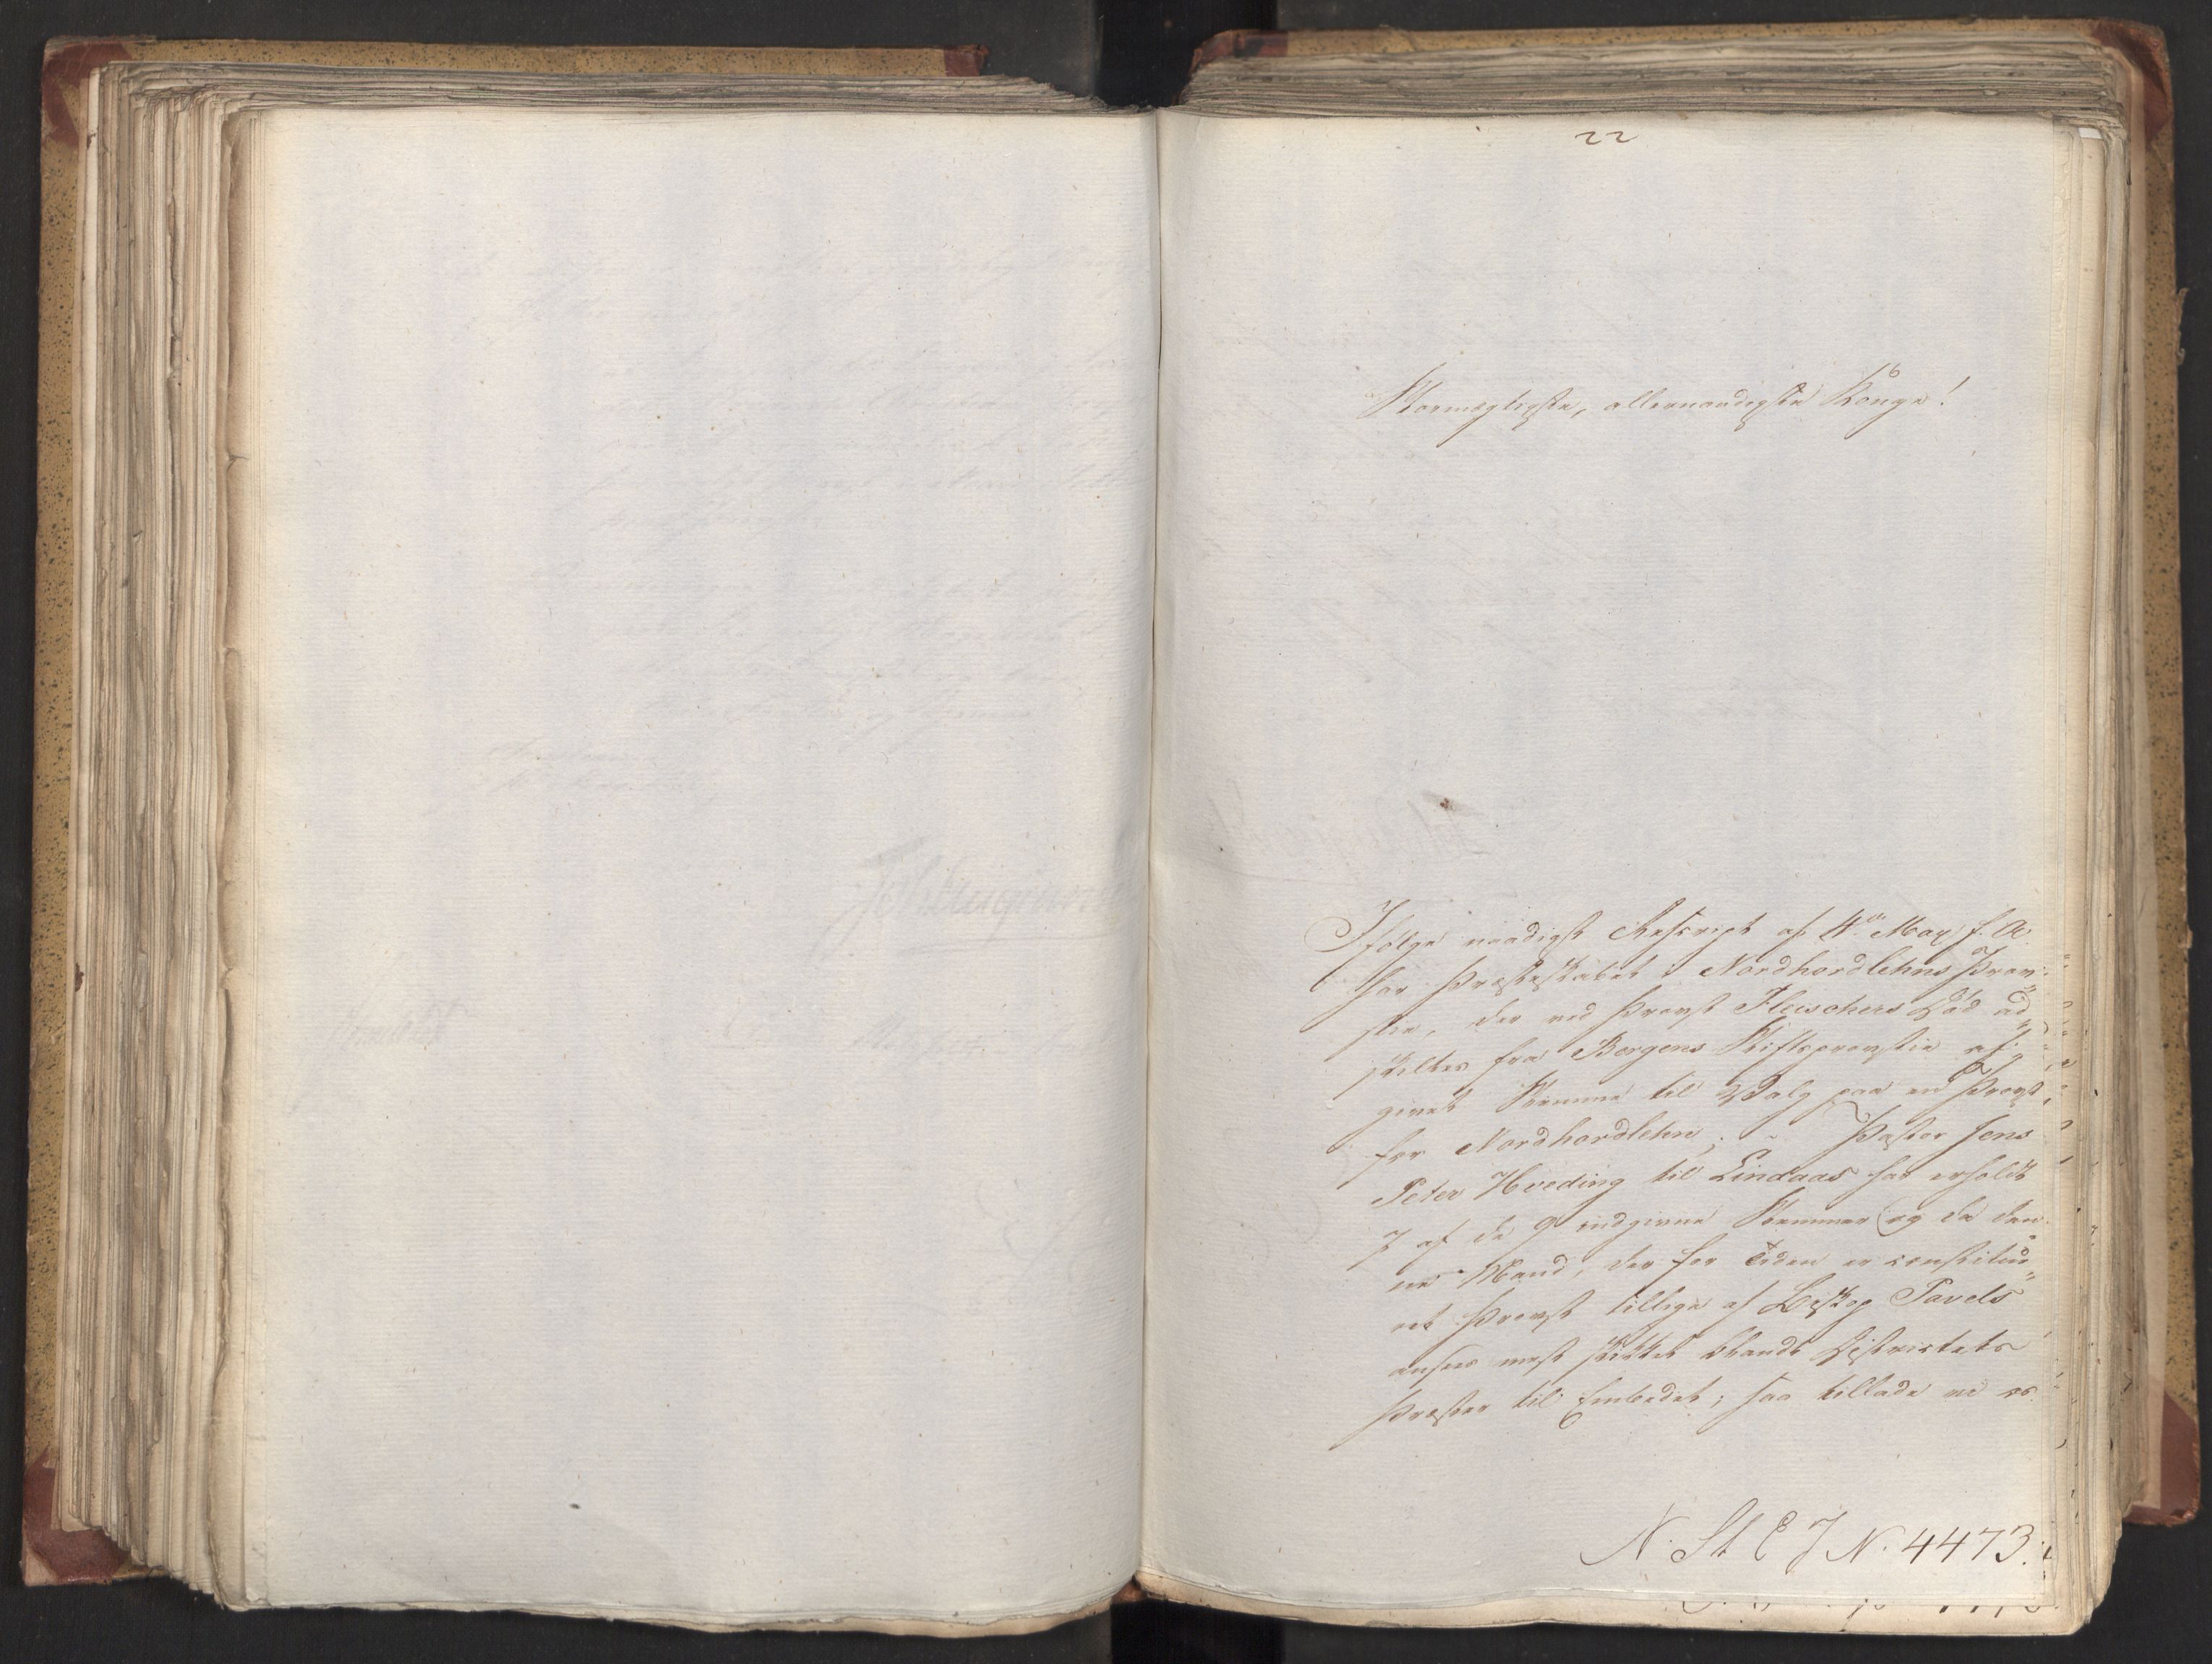 22
Stormægtigste, allernaadigste Konge!
Ifølge naadigst Rescript af 4de May f. A.
har Præsteskabet i Nordhordlehns Prov-
stie, der ved Provst Fleischers Død ad-
skiltes fra Bergens Stiftsprovstie afg
givet Stemme til Valg paa en Provst
for Nordhordlehn; - Pastor Jens
Peter Hveding til Lindaas har erholdt
7 af de 9 indgivne Stemmer og da den-
ne Mand, der for Tiden er constitue-
ret Provst tillige af Biskop Pavels
ansees mest skikket blandt Districtets
Præster til Embedet; saa tillade vi os
N. St E J N. 4473.